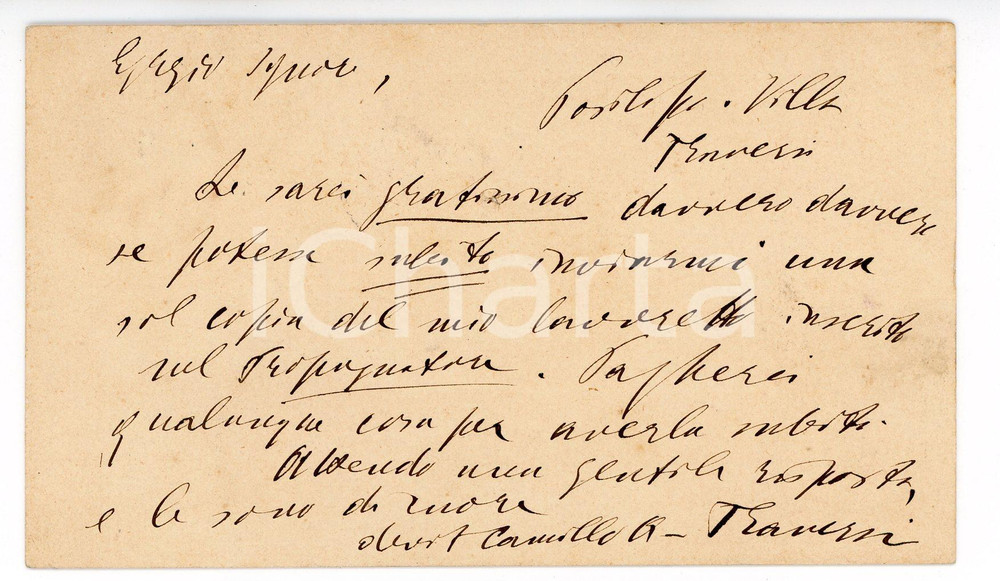 Egregio Signore,
Posilipo. Villa
Traversi
Le sarei gratissimo davvero davvero
se potesse subito inviarmi una
sol copia del mio lavoretto inserito
nel Propugnatore. Pagherei
qualunque cosa per averla subito.
Attendo una gentile risposta,
e le sono di cuore
devot Camillo A- Traversi
iCharta